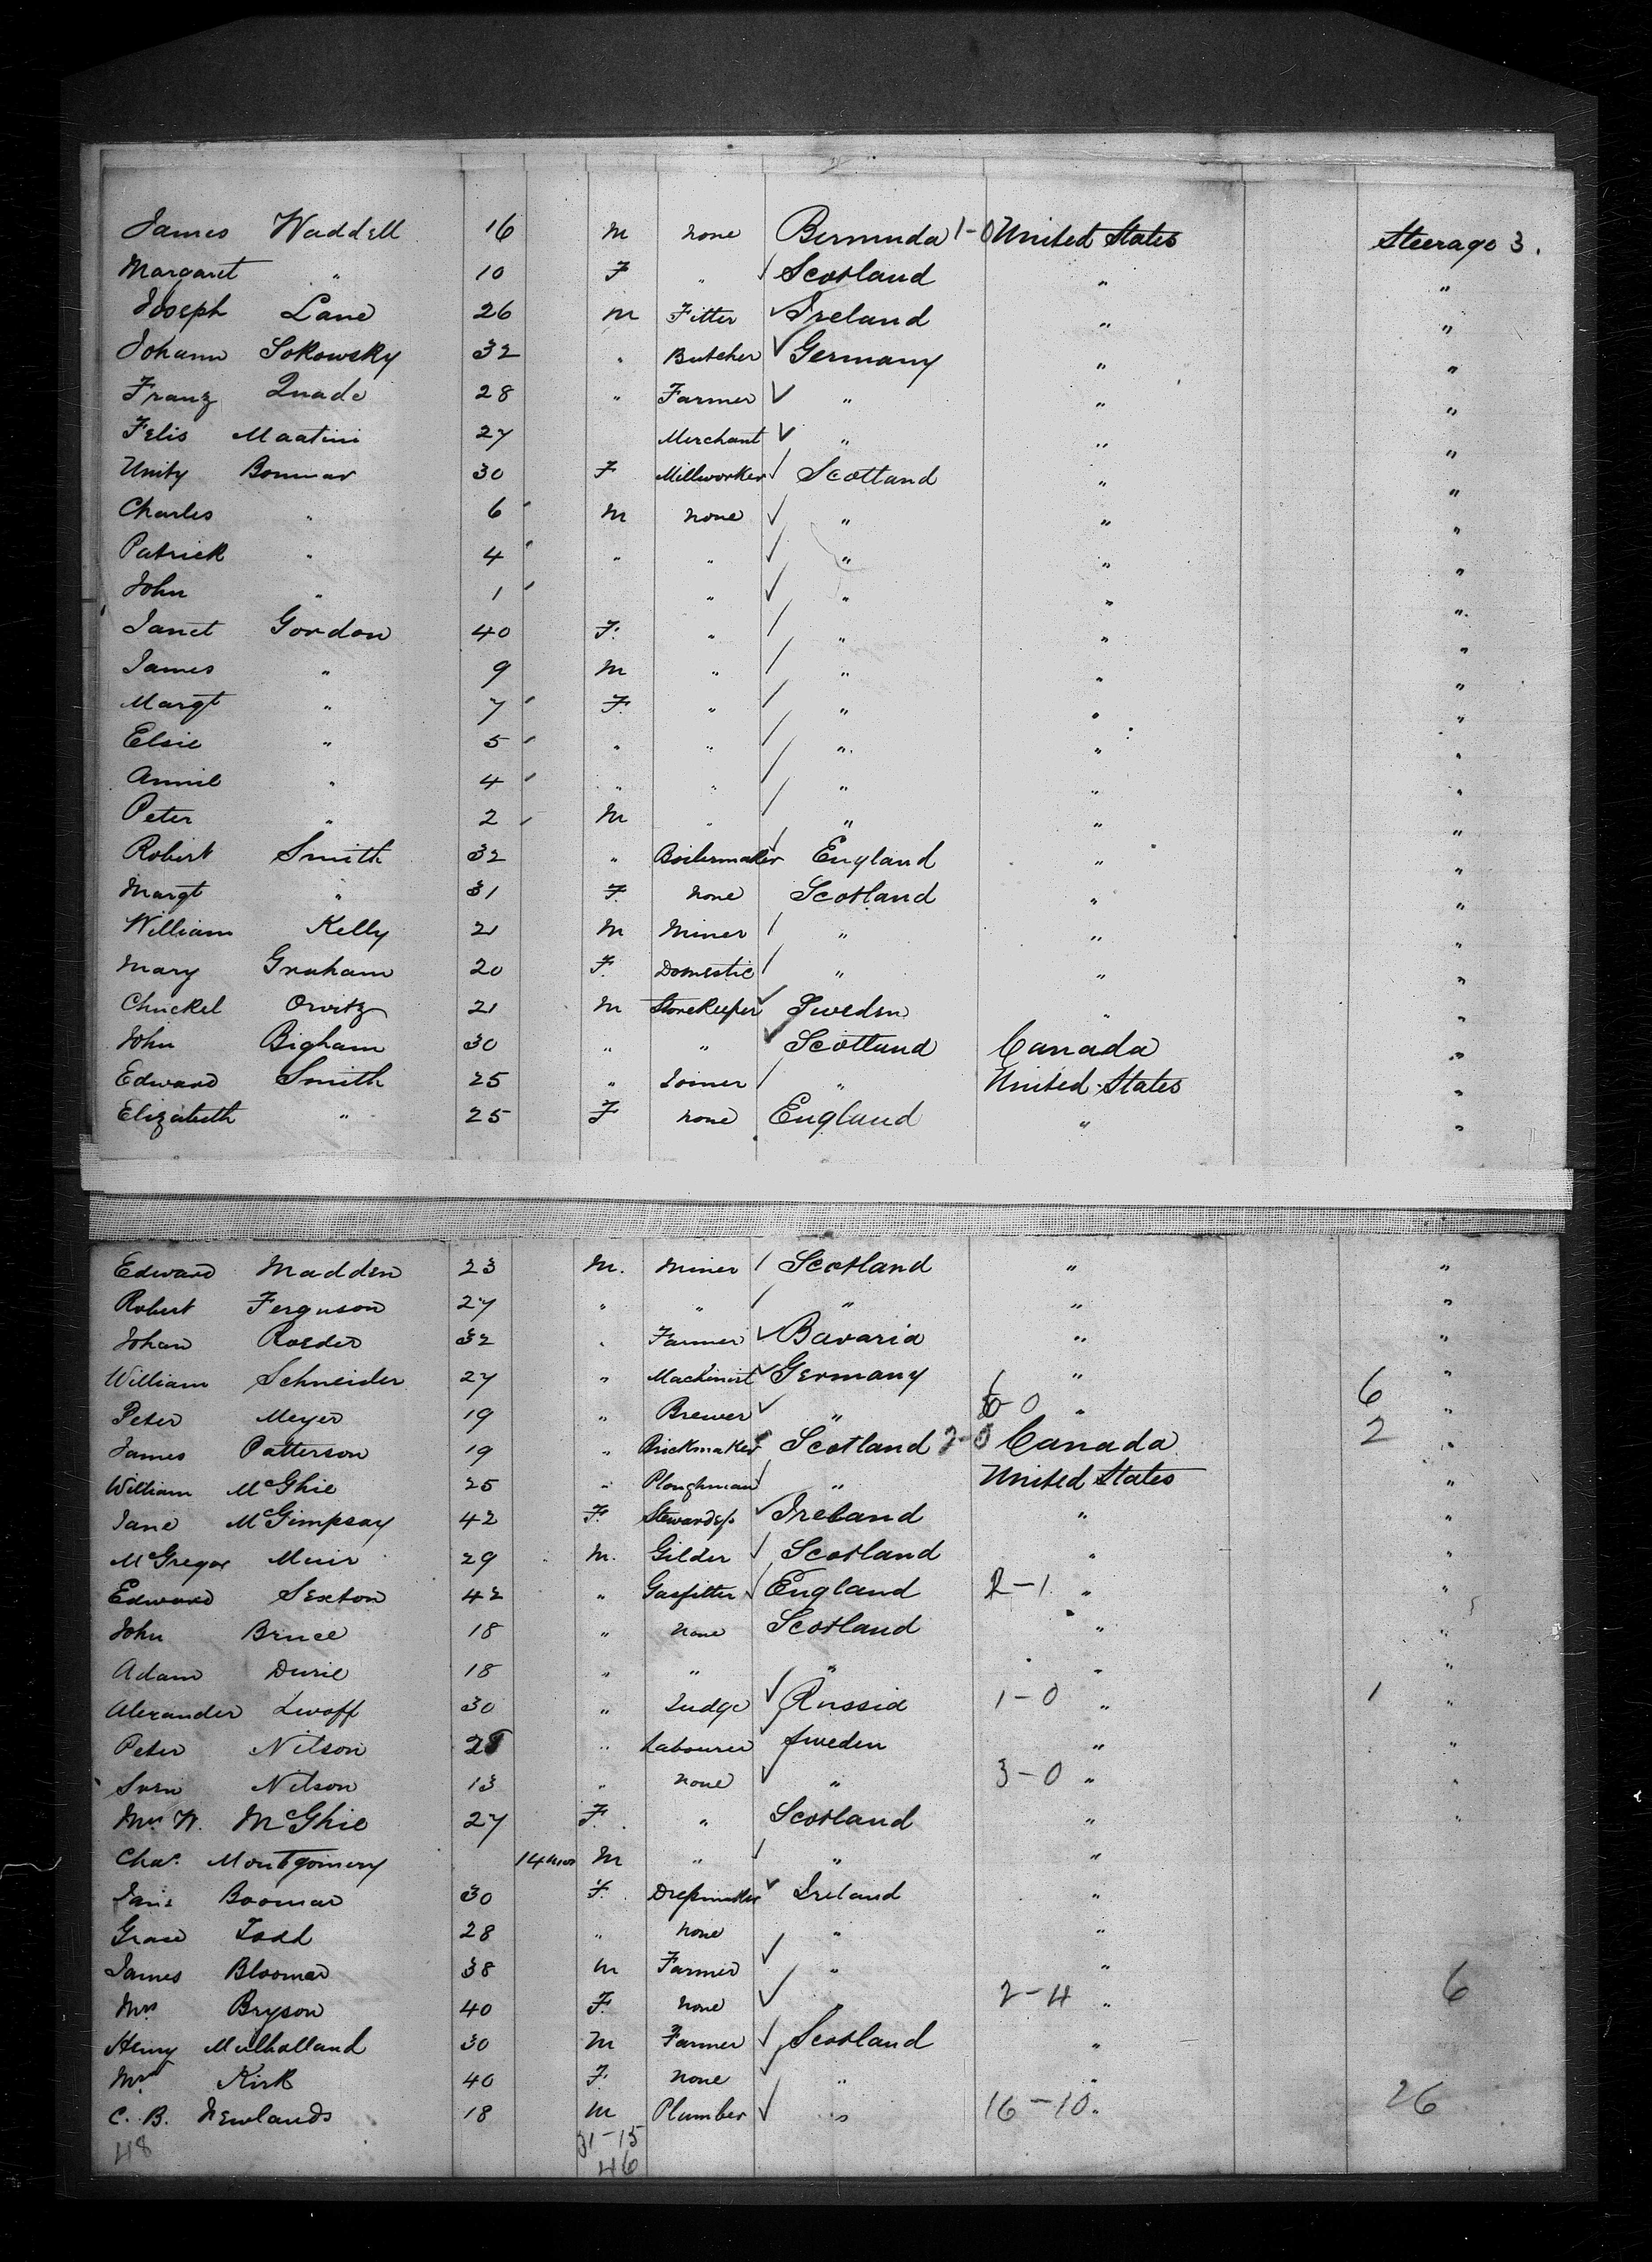 James Waddell 16 M none Bermuda 1-0 United States Steerage 3.
Margaret " 10 F " Scotland " "
Joseph Lane 26 M Fitter Ireland " "
Johann Sokowsky 32 " Butcher Germany " "
Franz Quade 28 " Farmer " " "
Felis Maatini 27 Merchant " " "
Unity Bonnar 30 F Millworker Scotland " "
Charles " 6 M none " " "
Patrick " 4 " " " " "
John " 1 " " " "
Janet Gordon 40 F. " " " "
James " 9 M " " " "
Margt " 7 F. " " " "
Elsie " 5 " " " " "
Annie " 4 " " " " "
Peter " 2 M " " " "
Robert Smith 32 " Boilermaker England " "
Margt " 31 F. none Scotland " "
William Kelly 21 M Miner " " "
Mary Graham 20 F. Domestic " " "
Chuckel Orvitz 21 M Storekeeper Sweden " "
John Bigham 30 " " Scotland Canada "
Edward Smith 25 " Joiner " United States "
Elizabeth " 25 F none England " "
Edward Madden 23 M. Miner Scotland " "
Robert Ferguson 27 " " " " "
Johan Roeder 32 " Farmer Bavaria " "
William Schneider 27 " Machinist Germany " "
Peter Meyer 19 " Brewer " 6-0 " 6 "
James Patterson 19 " Brickmaker Scotland 2-0 Canada 2 "
William McGhie 25 " Ploughman " United States "
Jane McGimpsay 42 F. Stewardess Ireland " "
McGregor Muir 29 M. Gilder Scotland " "
Edward Sexton 42 " Gasfitter England 2-1 " "
John Bruce 18 " none Scotland " "
Adam Durie 18 " " " " "
Alexander Lwoff 30 " Judge Russia 1-0 " 1 "
Peter Nilson 28 " Labourer Sweden " "
Sven Nilson 13 " none " 3-0 " "
Mrs W. McGhie 27 F. " Scotland " "
Chas. Montgomery 14 mos M " " "
Jane Boomar 30 F. Dressmaker Ireland "
Grace Todd 28 " none " "
James Bloomar 38 M Farmer " "
Mrs Bryson 40 F. none " 2-4 " 6
Henry Mulholland 30 M Farmer Scotland "
Mrs Kirk 40 F. none " "
C. B. Newlands 18 M Plumber " 16-10 " 26
48 31-15
46